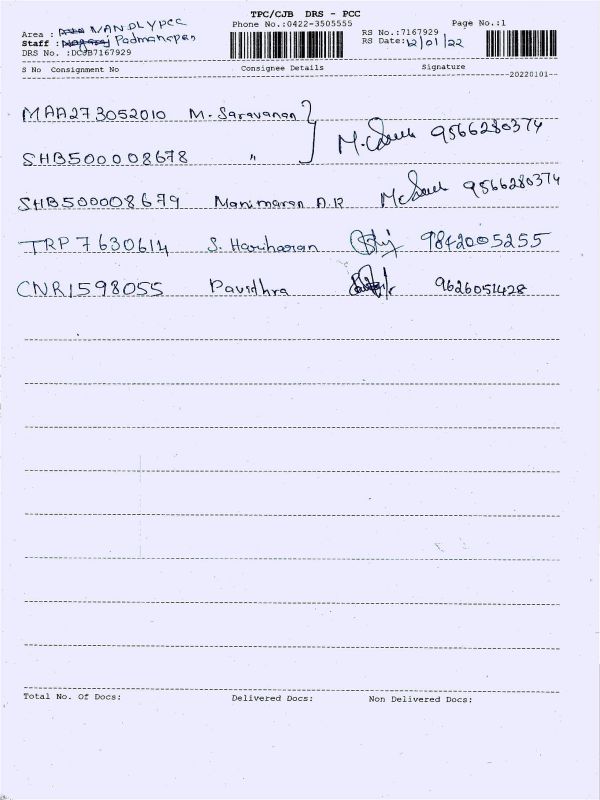 TPC/CJB DRS - PCC
Phone No.:0422-3505555 Page No.:1
Area : NANDLYPCC
Staff : Padmanapan
DRS No. :DCJB7167929
RS No.:7167929
RS Date:12/01/22
S No Consignment No Consignee Details Signature
20220101
MAA273052010 M. Saravanan
SHB500008678 " 9566280374
SHB500008679 Manimaran A.R 9566280374
TRP7630614 S. Hariharan 9842005255
CNR1598055 Pavidhra 9626051428
Total No. Of Docs: Delivered Docs: Non Delivered Docs: